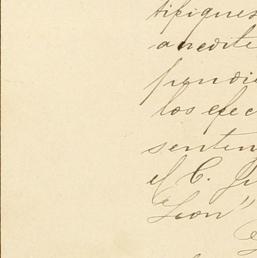 tifiques
acredite
los efec
senten
el C. Ju
Leon"